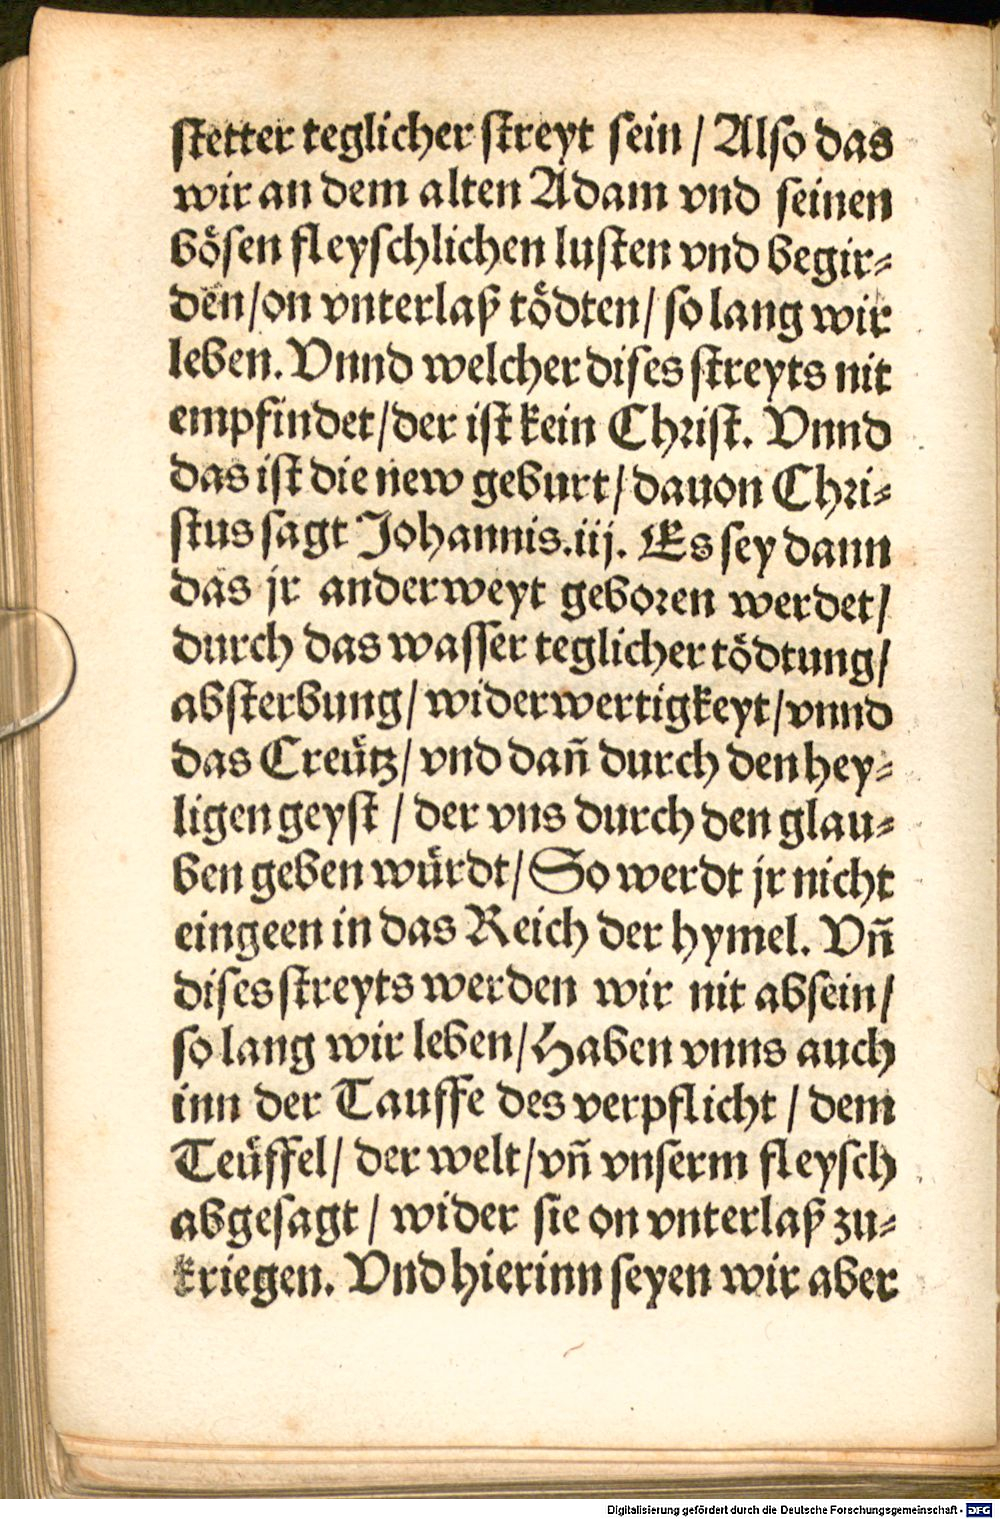 ſtetter teglicher ſtreyt ſein / Alſo das
wir an dem alten Adam vnd ſeinen
böſen fleyſchlichen luſten vnd begir⸗
den/on vnterlaß tödten/ ſo lang wir
leben. Vnnd welcher diſes ſtreyts nit
empfindet/der iſt kein Chꝛiſt. Vnnd
das iſt die new geburt/ dauon Chꝛi⸗
ſtus ſagt Johannis.iij. Es ſey dann
das jr anderweyt geboꝛen werdet/
durch das waſſer teglicher tödtung/
abſterbung/ widerwertigkeyt/vnnd
das Creütz/ vnd dañ durch den hey⸗
ligen geyſt / der vns durch den glau⸗
ben geben würdt/ So werdt jr nicht
eingeen in das Reich der hymel. Vñ
diſes ſtreyts werden wir nit abſein/
ſo lang wir leben/ Haben vnns auch
inn der Tauffe des verpflicht / dem
Teüffel/ der welt/vñ vnſerm fleyſch
abgeſagt / wider ſie on vnterlaß zu⸗
kriegen. Vnd hierinn ſeyen wir aber
Digitalisierung gefördert durch die Deutsche Forschungsgemeinschaft - DFG